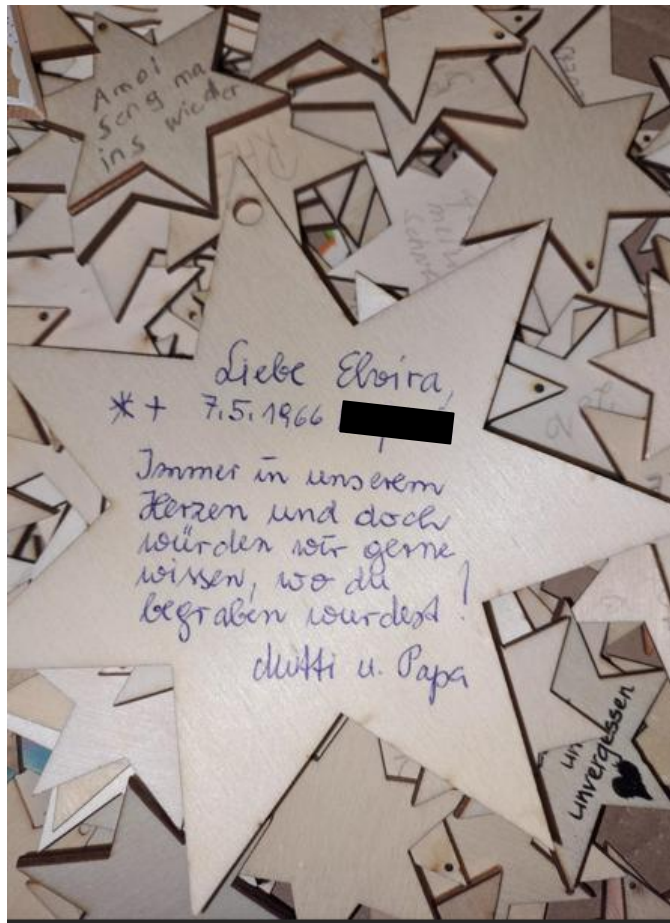 Amoi
seng ma
ins wieder
Liebe Elvira,
*+ 7.5.1966
Immer in unserem
Herzen und doch
würden wir gerne
wissen, wo du
begraben wurdest!
Mutti u. Papa
un
unvergessen